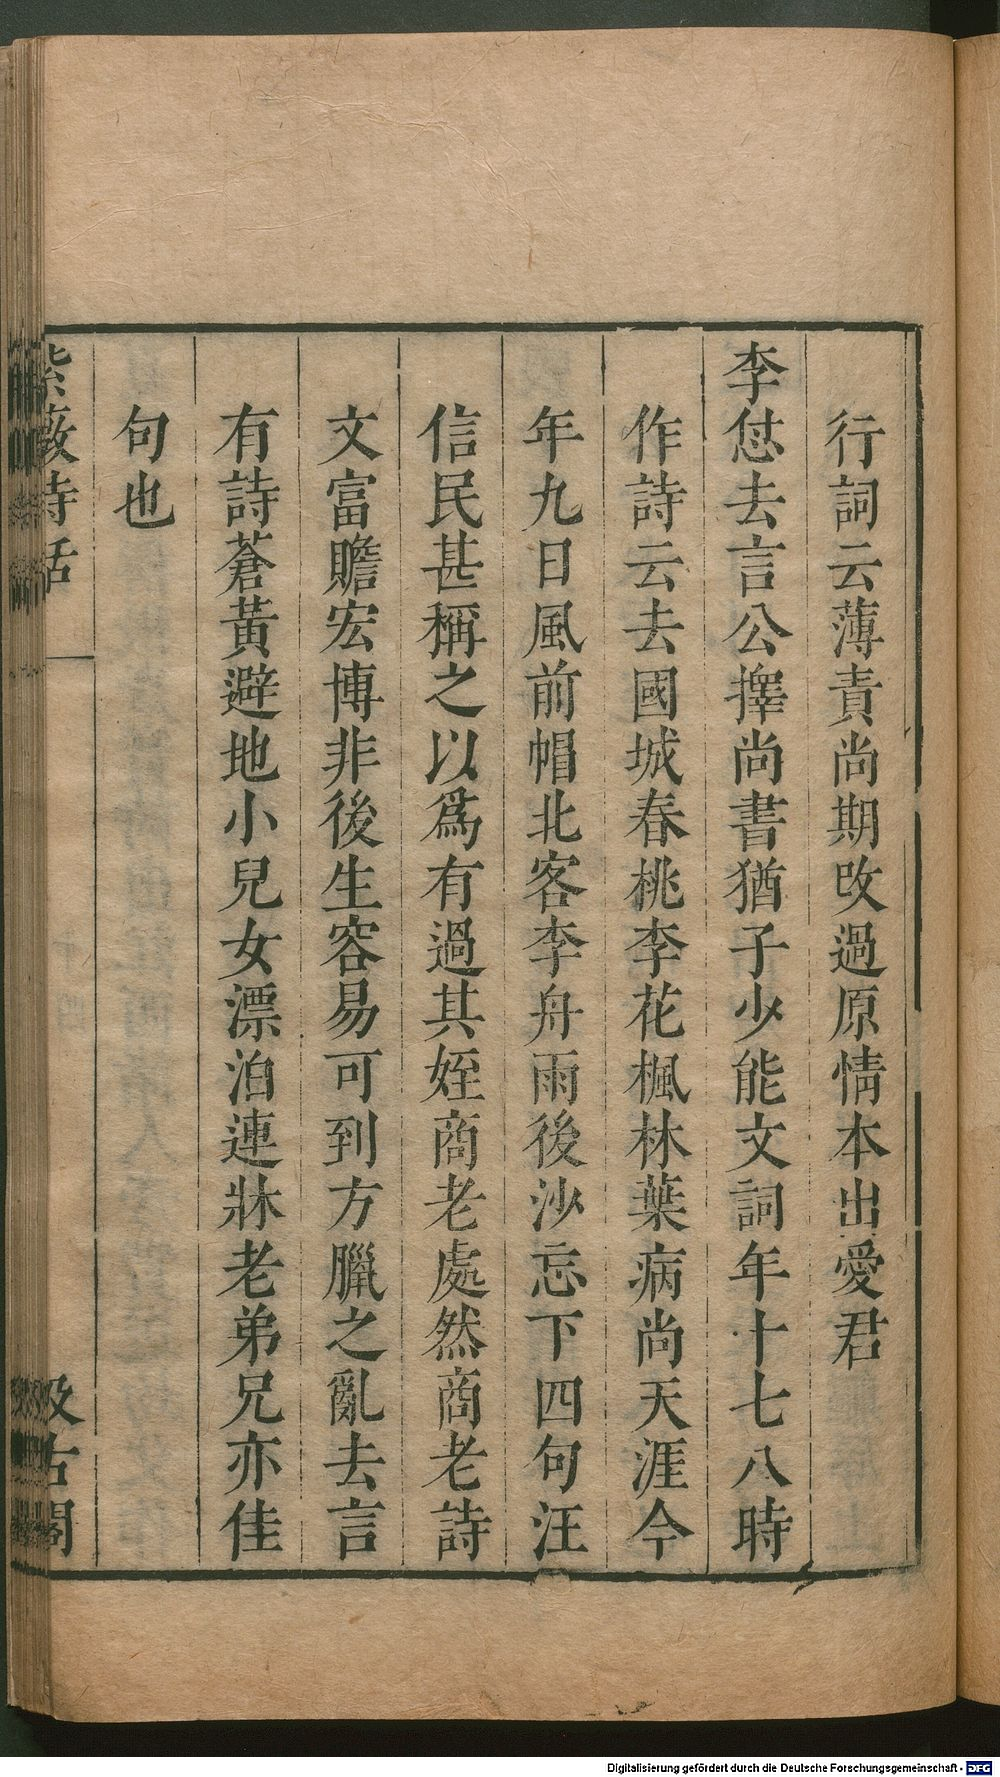 行詞云薄責尚期改過原情本出愛君
李𠍴去言公擇尚書猶子少能文詞年十七八時
作詩云去國城春桃李花楓林葉病尚天涯今
年九日風前帽北客李舟雨後沙忘下四句汪
信民甚稱之以爲有過其姪商老處然商老詩
文富贍宏博非後生容易可到方臘之亂去言
有詩蒼黃避地小兒女漂泊連牀老弟兄亦佳
句也
紫薇詩話
汲古閣
Digitalisierung gefördert durch die Deutsche Forschungsgemeinschaft - DFG